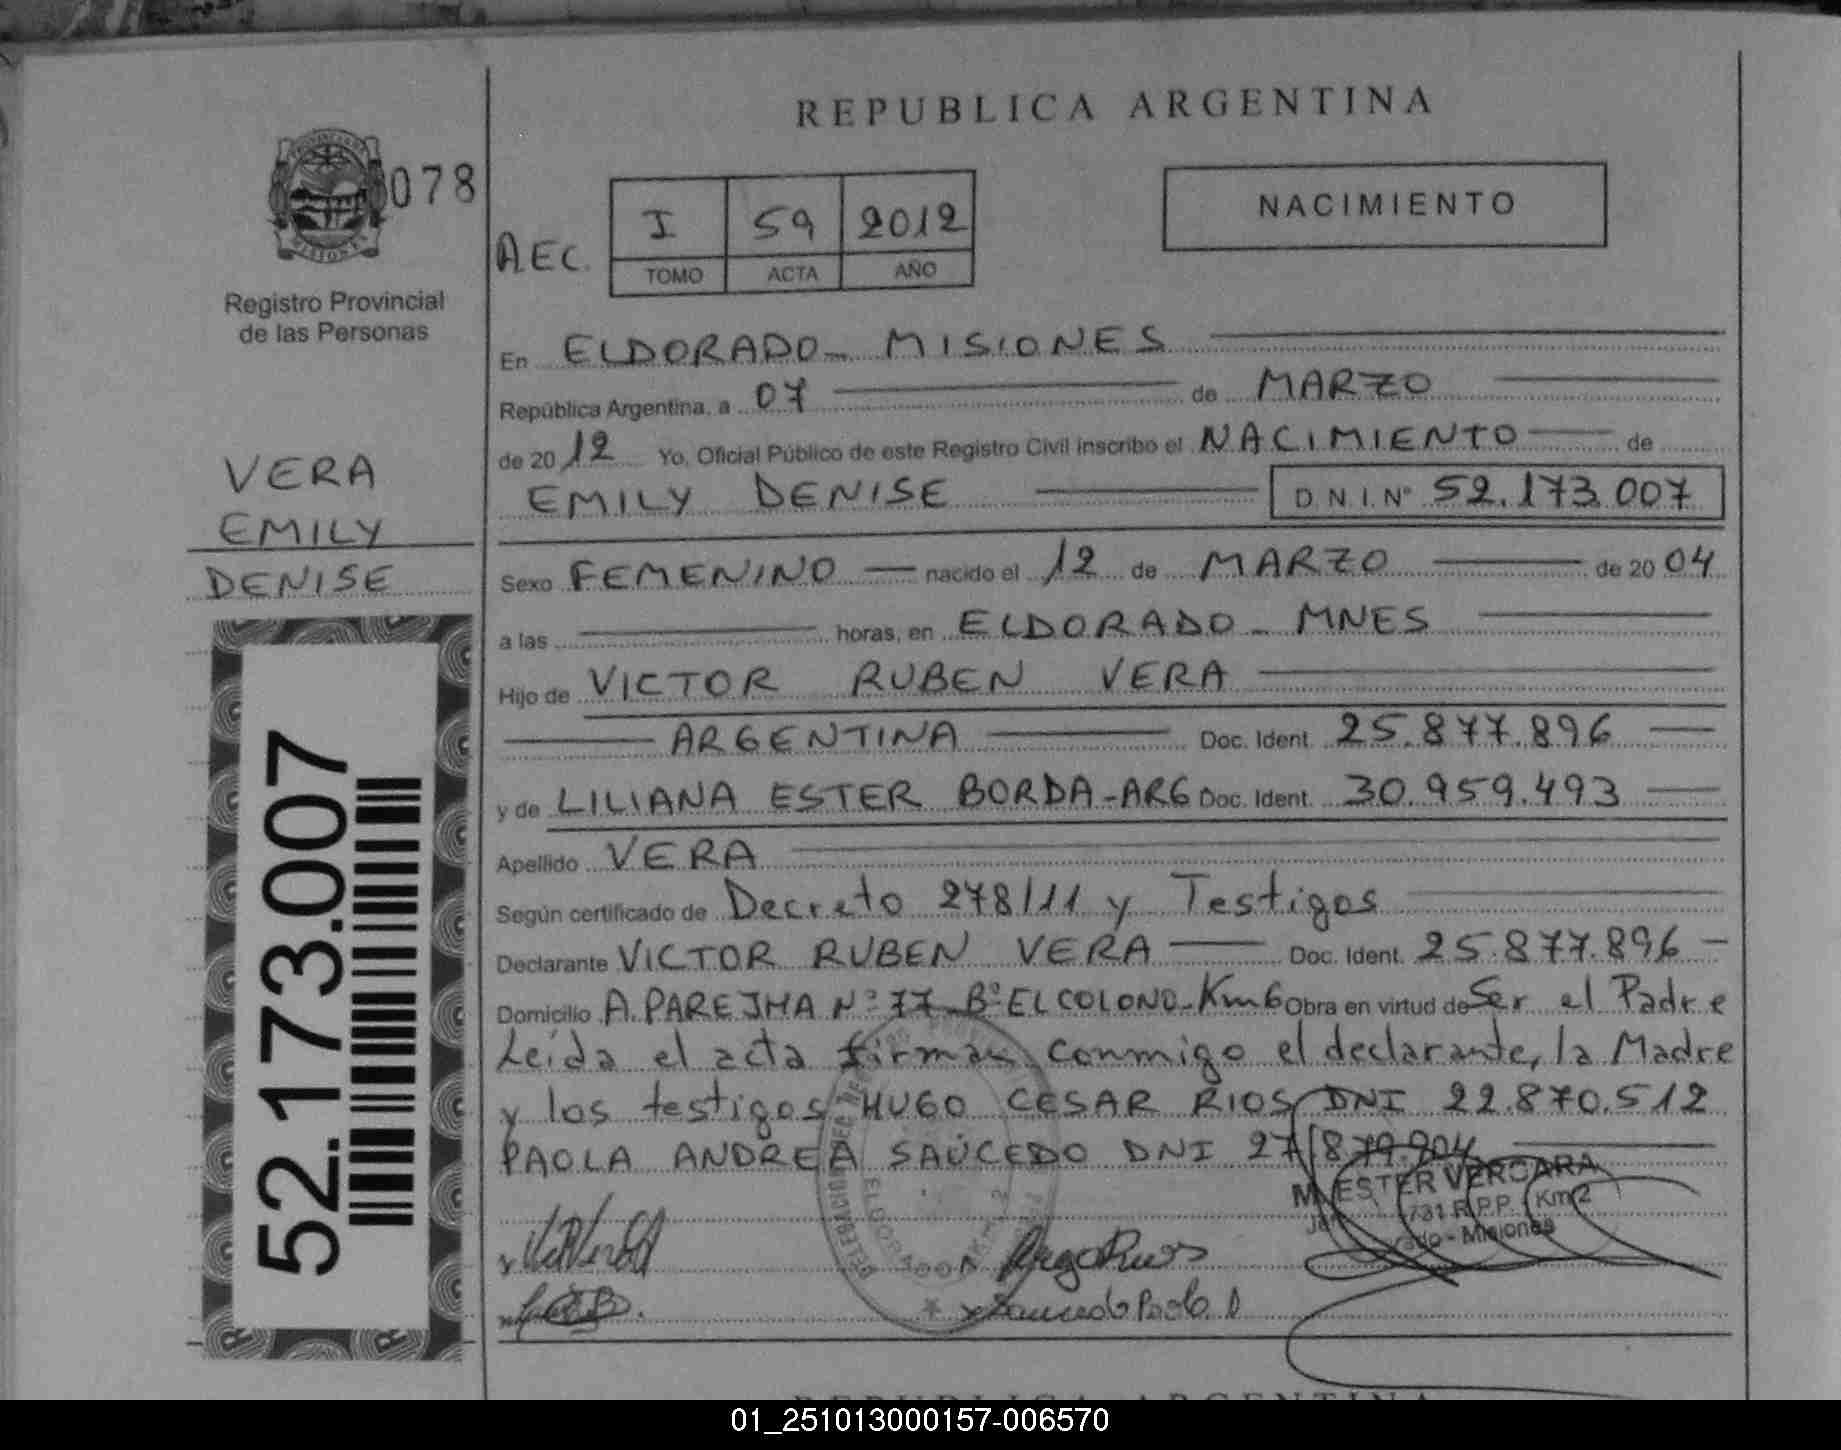 REPUBLICA ARGENTINA
078
NACIMIENTO
AEC. I 59 2012
TOMO ACTA AÑO
PROVINCIA DE MISIONES
Registro Provincial
de las Personas
VERA
EMILY
DENISE
52.173.007
En ELDORADO - MISIONES
República Argentina, a 07 de MARZO
de 2012 Yo, Oficial Público de este Registro Civil inscribo el NACIMIENTO de
EMILY DENISE D.N.I. N° 52.173.007
Sexo FEMENINO nacido el 12 de MARZO de 2004
a las horas, en ELDORADO - MNES
Hijo de VICTOR RUBEN VERA
ARGENTINA Doc. Ident. 25.877.896
y de LILIANA ESTER BORDA-ARG Doc. Ident. 30.959.493
Apellido VERA
Según certificado de Decreto 278/11 y Testigos
Declarante VICTOR RUBEN VERA Doc. Ident. 25.877.896
Domicilio A. PAREJHA N° 77 B° EL COLONO-Km 6 Obra en virtud de Ser el Padre
Leída el acta firman conmigo el declarante, la Madre
y los testigos HUGO CESAR RIOS DNI 22.870.512
PAOLA ANDREA SAUCEDO DNI 27.879.904
M. ESTER VERGARA
731 R.P.P. Km 2
- Misiones
ELDORADO KM. 2
Saucedo Paola A
REPUBLICA ARGENTINA
01_251013000157-006570